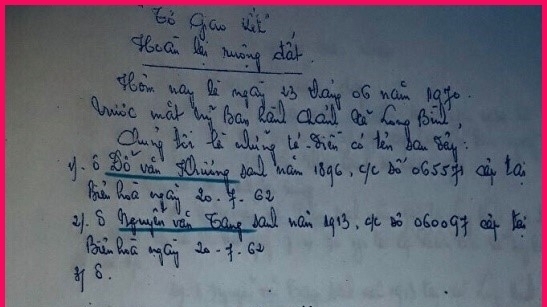 "Tờ Giao Kết"
Hoán lại ruộng đất.
Hôm nay là ngày 23 tháng 06 năm 1970.
Trước mặt Uỷ Ban hành chánh Xã Long Bình,
Chúng tôi là những tá điền có tên sau đây:
1/. Ô Đỗ văn Khương sanh năm 1896, c/c số 065571 cấp tại
Biên hoà ngày 20.7.62
2/. Ô Nguyễn văn Tang sanh năm 1913, c/c số 060097 cấp tại
Biên hoà ngày 20.7.62
3/ Ô.